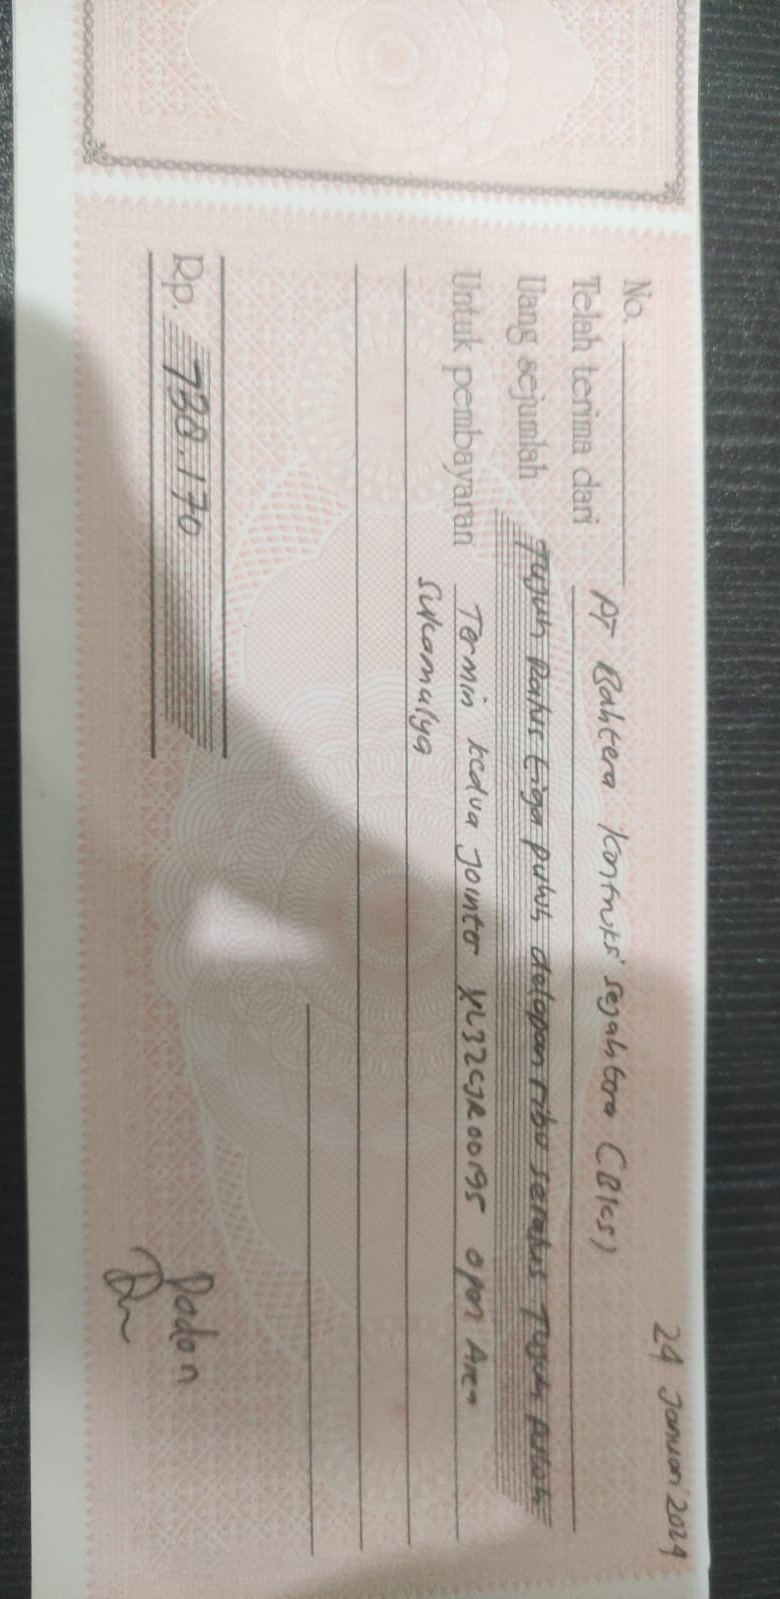 24 Januari 2024
No.
Telah terima dari PT Bahtera Kontruksi sejahtera (BKS)
Uang sejumlah Tujuh Ratus tiga puluh delapan ribu seratus Tujuh puluh
Untuk pembayaran Termin kedua Jointer XL32CJR00195 open Area
Sukamulya
Rp. 738.170
Dadan